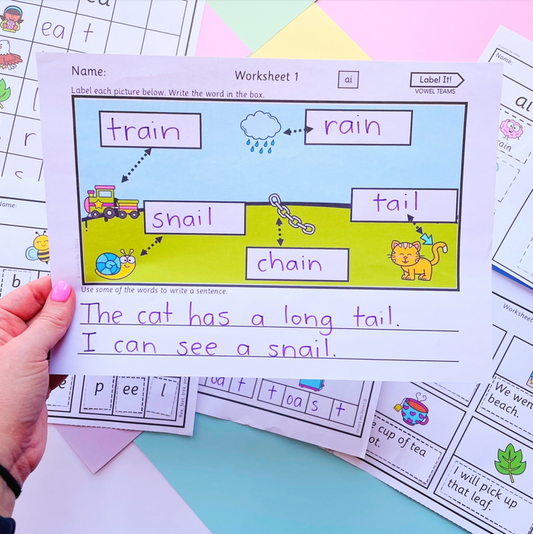 ea t
Name:
Worksheet 1
ai
Label It!
VOWEL TEAMS
Label each picture below. Write the word in the box.
train
rain
tail
snail
chain
Use some of the words to write a sentence.
The cat has a long tail.
I can see a snail.
Name:
Name:
ai
r
b
p ee l
oa t
t oa s t
cup of tea
We wen
beach.
I will pick up
that leaf.